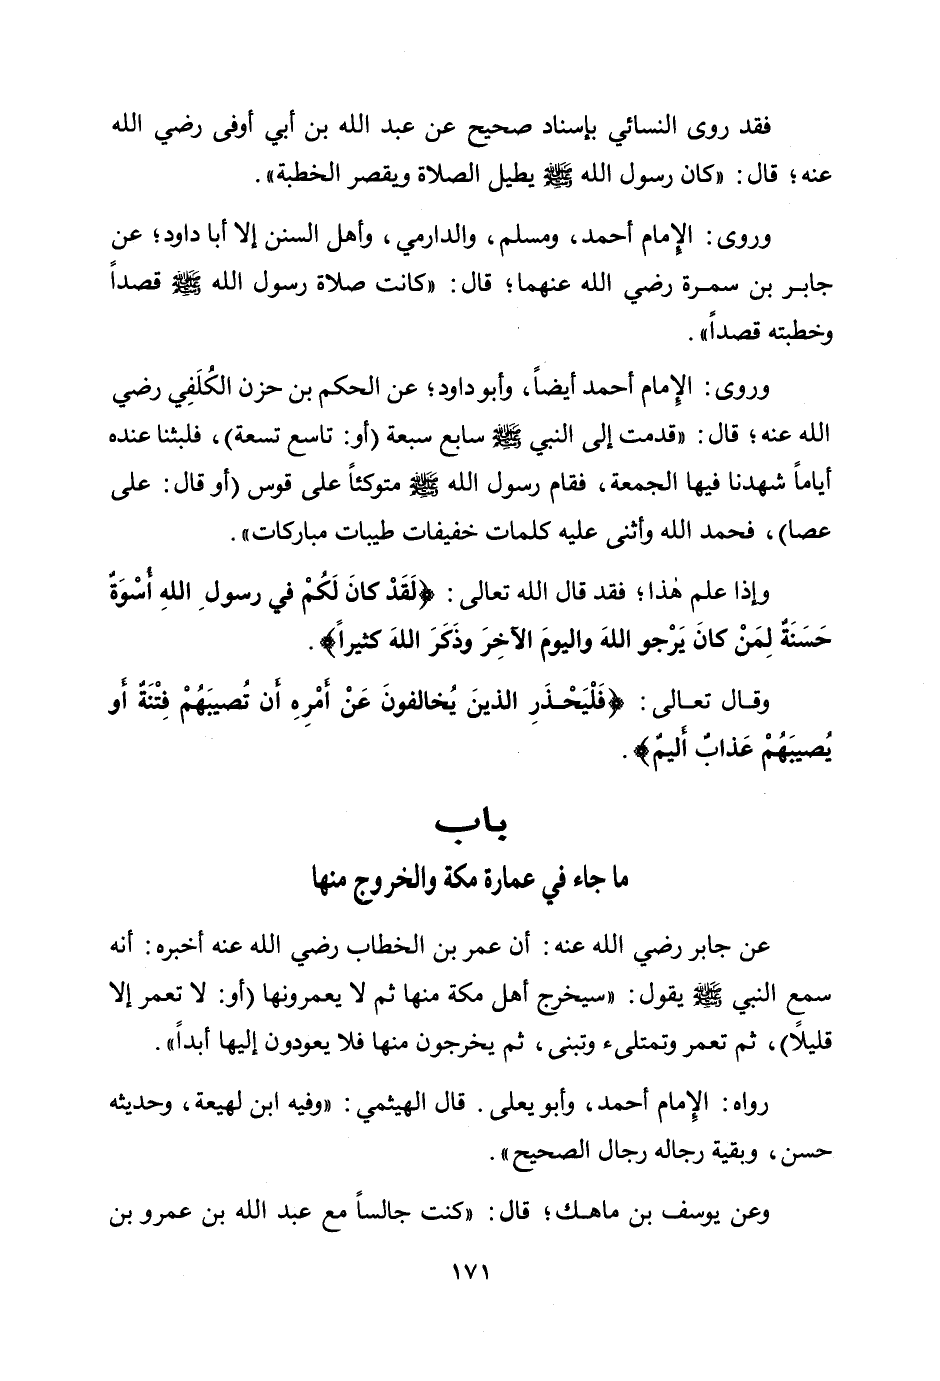 فقد روى النسائي بإسناد صحيح عن عبد الله بن أبي أوفى رضي الله
عنه؛ قال: «كان رسول الله ﷺ يطيل الصلاة ويقصر الخطبة».
وروى: الإمام أحمد، ومسلم، والدارمي، وأهل السنن إلا أبا داود؛ عن
جابر بن سمرة رضي الله عنهما؛ قال: «كانت صلاة رسول الله ﷺ قصداً
وخطبته قصداً».
وروى: الإمام أحمد أيضاً، وأبو داود؛ عن الحكم بن حزن الكُلَفِي رضي
الله عنه؛ قال: «قدمت إلى النبي ﷺ سابع سبعة (أو: تاسع تسعة)، فلبثنا عنده
أياماً شهدنا فيها الجمعة، فقام رسول الله ﷺ متوكئاً على قوس (أو قال: على
عصا)، فحمد الله وأثنى عليه كلمات خفيفات طيبات مباركات».
وإذا علم هٰذا؛ فقد قال الله تعالى: ﴿لَقَدْ كانَ لَكُمْ في رسولِ اللهِ أُسْوَةٌ
حَسَنَةٌ لِمَنْ كانَ يَرْجو اللهَ واليومَ الآخِرَ وذَكَرَ اللهَ كثيراً﴾.
وقال تعالى: ﴿فَلْيَحْذَرِ الذينَ يُخالفونَ عَنْ أَمْرِهِ أَن تُصيبَهُمْ فِتْنَةٌ أَو
يُصيبَهُمْ عَذابٌ أَليمٌ﴾.
باب
ما جاء في عمارة مكة والخروج منها
عن جابر رضي الله عنه: أن عمر بن الخطاب رضي الله عنه أخبره: أنه
سمع النبي ﷺ يقول: «سيخرج أهل مكة منها ثم لا يعمرونها (أو: لا تعمر إلا
قليلاً)، ثم تعمر وتمتلىء وتبنى، ثم يخرجون منها فلا يعودون إليها أبداً».
رواه: الإمام أحمد، وأبو يعلى. قال الهيثمي: «وفيه ابن لهيعة، وحديثه
حسن، وبقية رجاله رجال الصحيح».
وعن يوسف بن ماهك؛ قال: «كنت جالساً مع عبد الله بن عمرو بن
١٧١